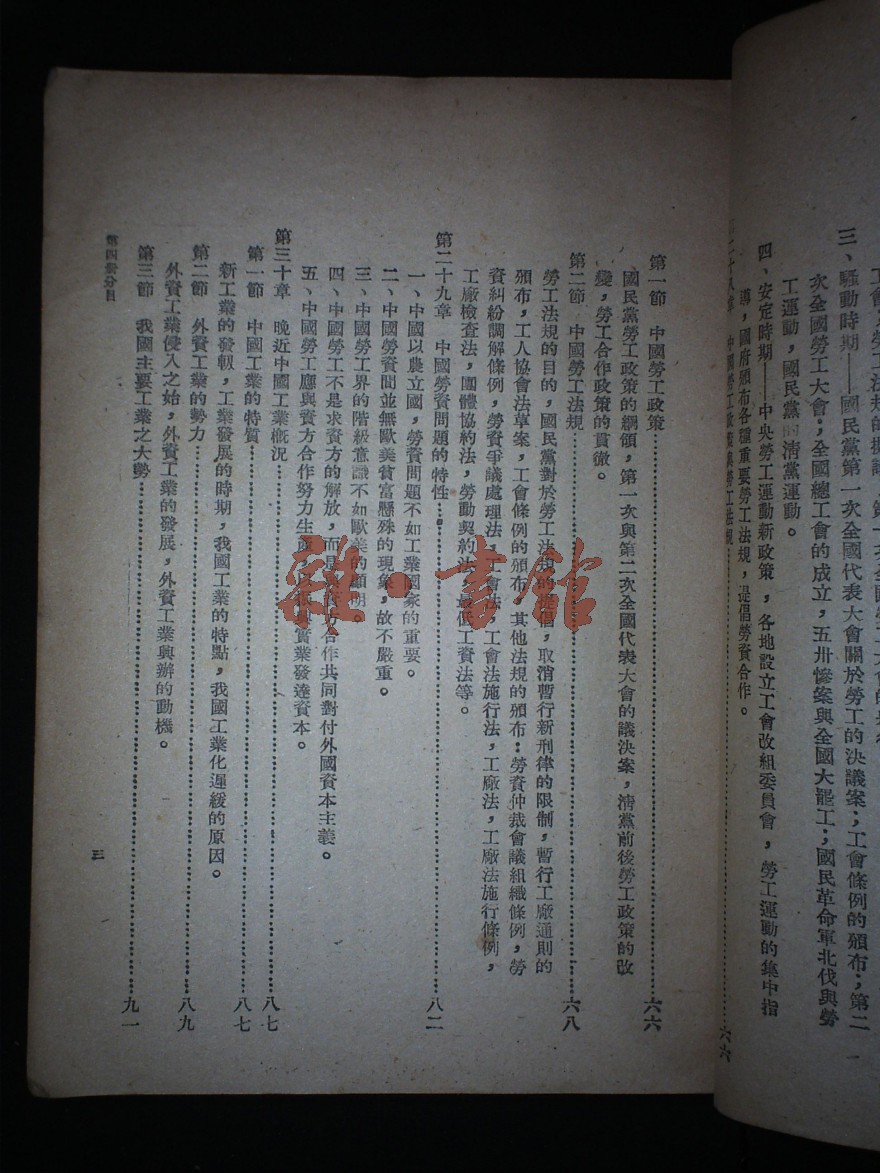 三、騷動時期——國民黨第一次全國代表大會關於勞工的決議案;工會條例的頒布;第二
次全國勞工大會;全國總工會的成立,五卅慘案與全國大罷工;國民革命軍北伐與勞
工運動,國民黨的清黨運動。
四、安定時期——中央勞工運動新政策,各地設立工會改組委員會,勞工運動的集中指
導,國府頒布各種重要勞工法規,提倡勞資合作。
二十八章 中國勞工政策與勞工法規……六六
第一節 中國勞工政策……六六
國民黨勞工政策的綱領,第一次與第二次全國代表大會的議決案,清黨前後勞工政策的改
變,勞工合作政策的貫徹。
第二節 中國勞工法規……六八
勞工法規的目的,國民黨對於勞工法規的提倡,取消暫行新刑律的限制,暫行工廠通則的
頒布,工人協會法草案,工會條例的頒布,其他法規的頒布:勞資仲裁會議組織條例,勞
資糾紛調解條例,勞資爭議處理法,工會法,工會法施行法,工廠法,工廠法施行條例,
工廠檢查法,團體協約法,勞動契約法,最低工資法等。
第二十九章 中國勞資問題的特性……八二
一、中國以農立國,勞資問題不如工業國家的重要。
二、中國勞資間並無歐美貧富懸殊的現象,故不嚴重。
三、中國勞工界的階級意識不如歐美的顯明。
四、中國勞工不是求資方的解放,而是與資方合作共同對付外國資本主義。
五、中國勞工應與資方合作努力生產,以振興實業發達資本。
第三十章 晚近中國工業概況……八七
第一節 中國工業的特質……八七
新工業的發軔,工業發展的時期,我國工業的特點,我國工業化遲緩的原因。
第二節 外資工業的勢力……八九
外資工業侵入之始,外資工業的發展,外資工業興辦的動機。
第三節 我國主要工業之大勢……九一
第四册分目
三
雜·書館